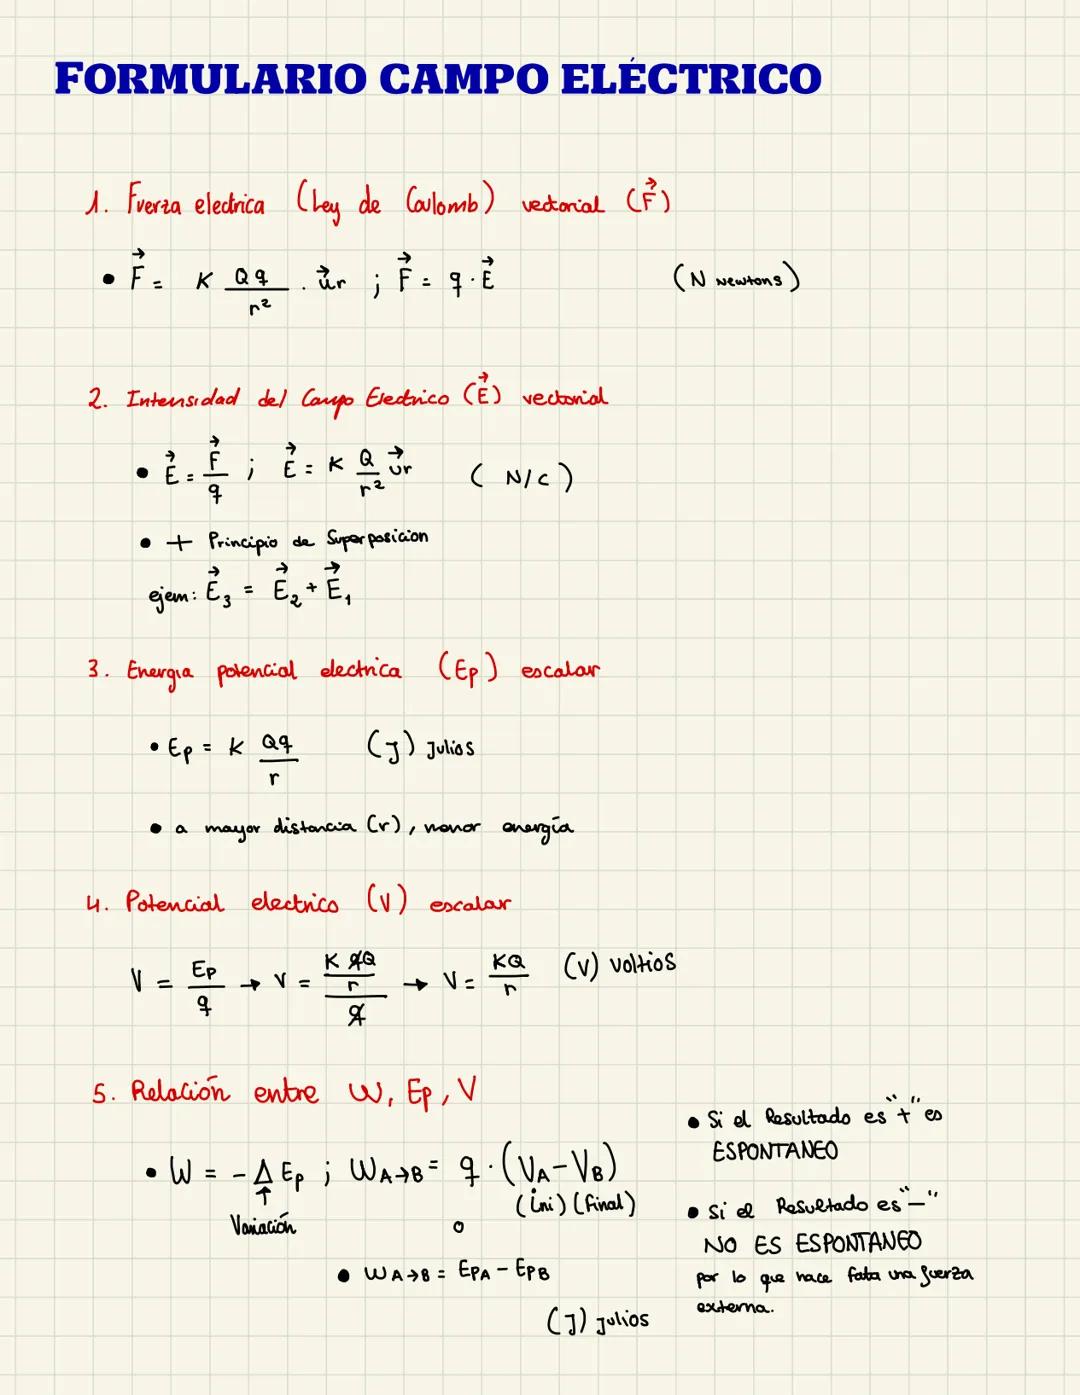 FORMULARIO CAMPO ELÉCTRICO
1. Fuerza electrica (Ley de Coulomb) vectorial (F⃗)
• F⃗ = K Qq/r² · u⃗r ; F⃗ = q · E⃗ (N newtons)
2. Intensidad del Campo Electrico (E⃗) vectorial
• E⃗ = F⃗/q ; E⃗ = K Q/r² u⃗r (N/C)
• + Principio de Superposicion
ejem: E⃗₃ = E⃗₂ + E⃗₁
3. Energia potencial electrica (Ep) escalar
• Ep = K Qq/r (J) Julios
• a mayor distancia (r), menor energía
4. Potencial electrico (V) escalar
V = Ep/q → V = (K qQ/r)/q → V = KQ/r (V) Voltios
5. Relación entre W, Ep, V
• W = - Δ Ep ; W A→B = q · (VA - VB)
↑ (ini) (final)
Variación o
• W A→B = EPA - EPB
(J) Julios
• Si el Resultado es "+" es
ESPONTANEO
• Si el Resultado es "-"
NO ES ESPONTANEO
por lo que hace fata una fuerza
externa.